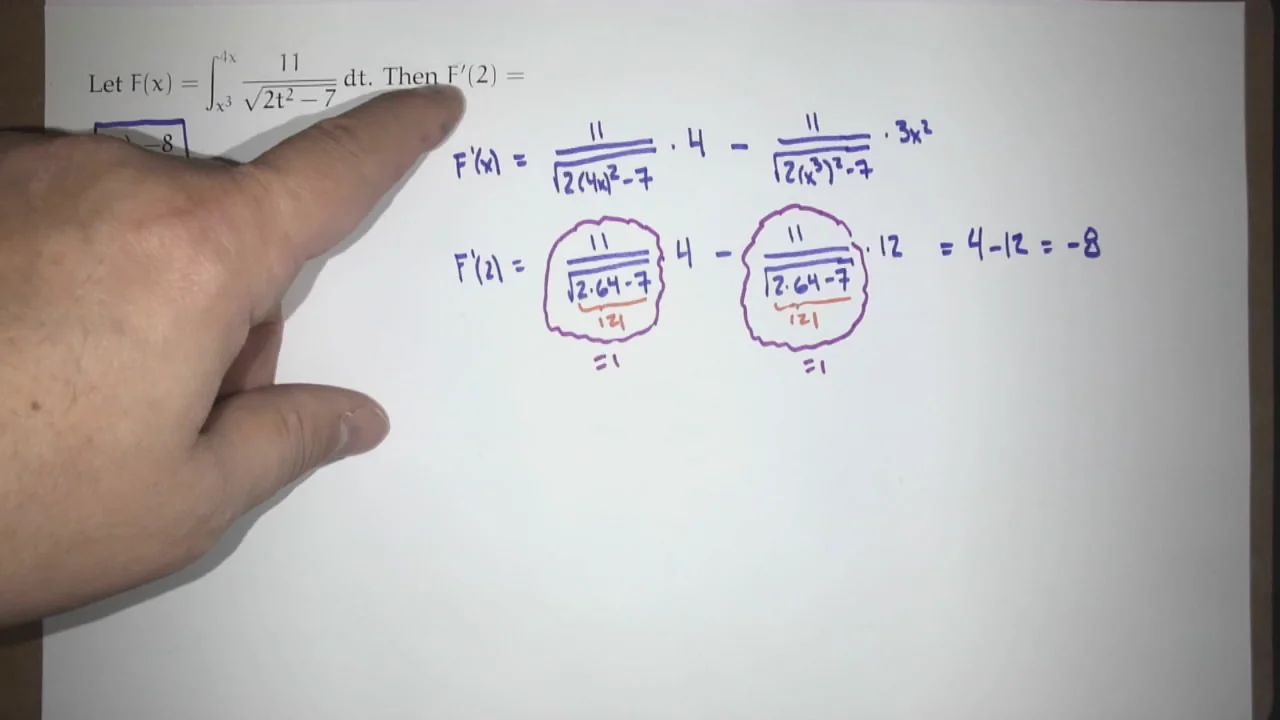 Let F(x) = ∫_{x³}^{4x} 11/√(2t² − 7) dt. Then F′(2) =
−8
F'(x) = 11/√(2(4x)²−7) · 4 − 11/√(2(x³)²−7) · 3x²
F'(2) = 11/√(2·64−7) · 4 − 11/√(2·64−7) · 12 = 4−12 = −8
121 121
=1 =1